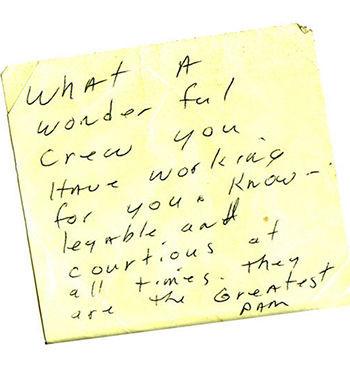 What A
wonderful
crew you
Have working
for you. Know-
legable and
courtious at
all times. They
are the Greatest
PAM